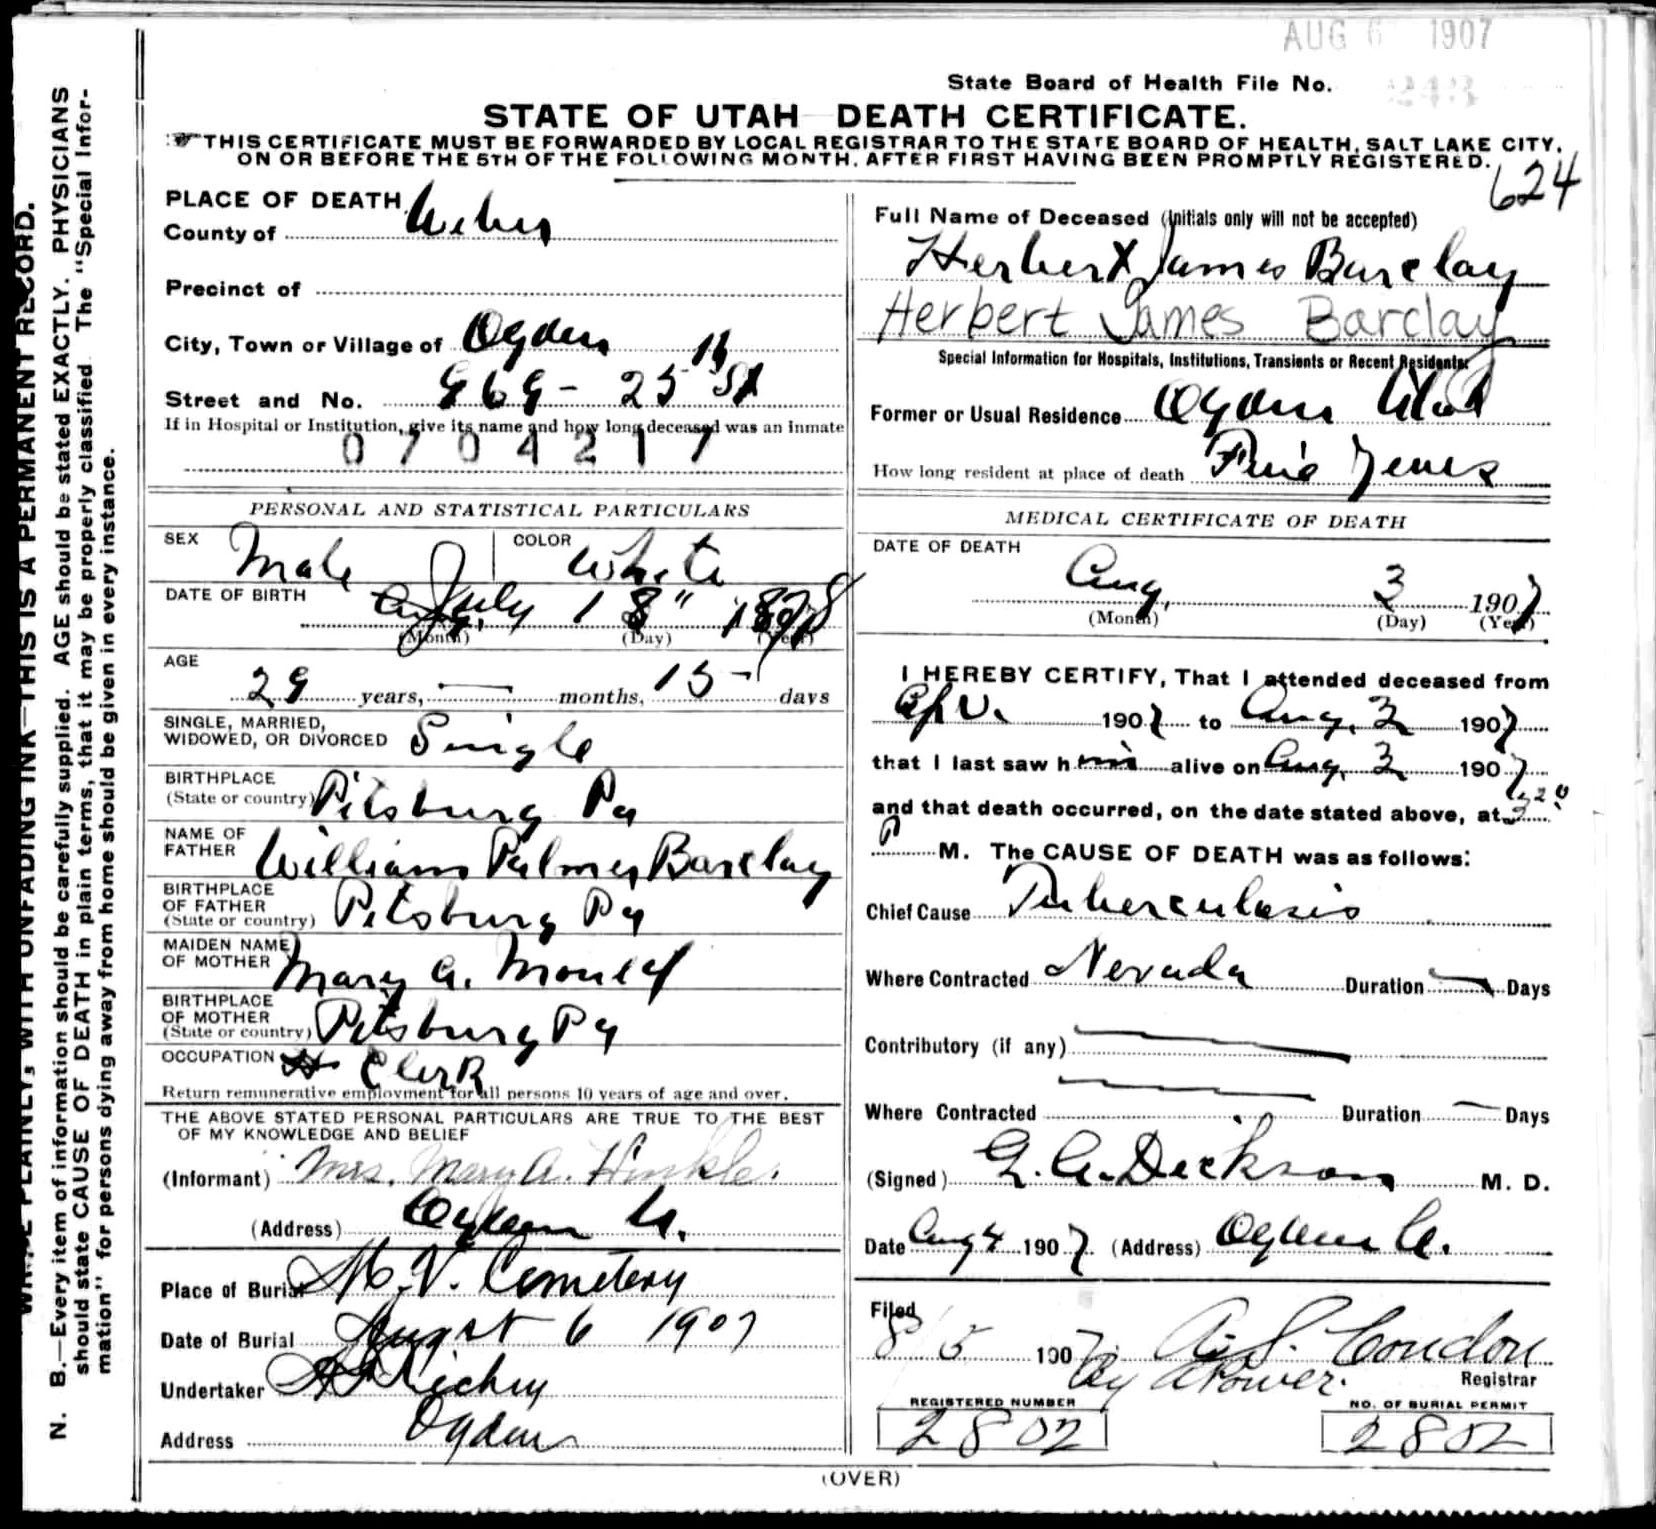 AUG 6 1907
State Board of Health File No. 243
STATE OF UTAH DEATH CERTIFICATE.
THIS CERTIFICATE MUST BE FORWARDED BY LOCAL REGISTRAR TO THE STATE BOARD OF HEALTH, SALT LAKE CITY,
ON OR BEFORE THE 5TH OF THE FOLLOWING MONTH, AFTER FIRST HAVING BEEN PROMPTLY REGISTERED.
624
WRITE PLAINLY, WITH UNFADING INK—THIS IS A PERMANENT RECORD.
N. B.—Every item of information should be carefully supplied. AGE should be stated EXACTLY. PHYSICIANS
should state CAUSE OF DEATH in plain terms, that it may be properly classified. The "Special Infor-
mation" for persons dying away from home should be given in every instance.
PLACE OF DEATH
County of Weber
Precinct of
City, Town or Village of Ogden
Street and No. 969 - 25th St
If in Hospital or Institution, give its name and how long deceased was an inmate
0704217
PERSONAL AND STATISTICAL PARTICULARS
SEX Male COLOR White
DATE OF BIRTH July 18" 1878
(Month) (Day) (Year)
AGE
29 years, — months, 15 days
SINGLE, MARRIED,
WIDOWED, OR DIVORCED Single
BIRTHPLACE
(State or country) Pitsburg Pa
NAME OF
FATHER William Palmer Barclay
BIRTHPLACE
OF FATHER
(State or country) Pitsburg Pa
MAIDEN NAME
OF MOTHER Mary A.
BIRTHPLACE
OF MOTHER
(State or country) Pitsburg Pa
OCCUPATION Clerk
Return remunerative employment for all persons 10 years of age and over.
THE ABOVE STATED PERSONAL PARTICULARS ARE TRUE TO THE BEST
OF MY KNOWLEDGE AND BELIEF
(Informant) Mrs. Mary A. Hinkle.
(Address) Ogden U.
Place of Burial Mt. V. Cemetery
Date of Burial August 6 1907
Undertaker
Address Ogden
Full Name of Deceased (Initials only will not be accepted)
Herbert James Barclay
Herbert James Barclay
Special Information for Hospitals, Institutions, Transients or Recent Residents
Former or Usual Residence Ogden Utah
How long resident at place of death Five Years
MEDICAL CERTIFICATE OF DEATH
DATE OF DEATH
Aug, 3 1907
(Month) (Day) (Year)
I HEREBY CERTIFY, That I attended deceased from
1907 to Aug, 3 1907
that I last saw him alive on Aug, 3 1907
and that death occurred, on the date stated above, at 3.20
P M. The CAUSE OF DEATH was as follows:
Chief Cause Tuberculosis
Where Contracted Nevada Duration — Days
Contributory (if any) —
Where Contracted — Duration — Days
(Signed) E. C. Dickson M. D.
Date Aug 4 1907. (Address) Ogden U.
Filed
8/5 1907 A. S. Condon
By A Power. Registrar
REGISTERED NUMBER NO. OF BURIAL PERMIT
2802 2802
(OVER)